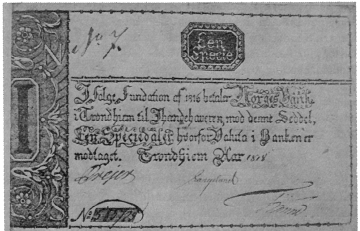 No 7.
Een
Specie
I
I Følge Fundation af 1816 betaler Norges Bank
i Trondhiem til Ihændehaveren mod denne Seddel,
Een Speciedaler hvorfor Valuta i Banken er
modtaget. Trondhiem Aar 1818